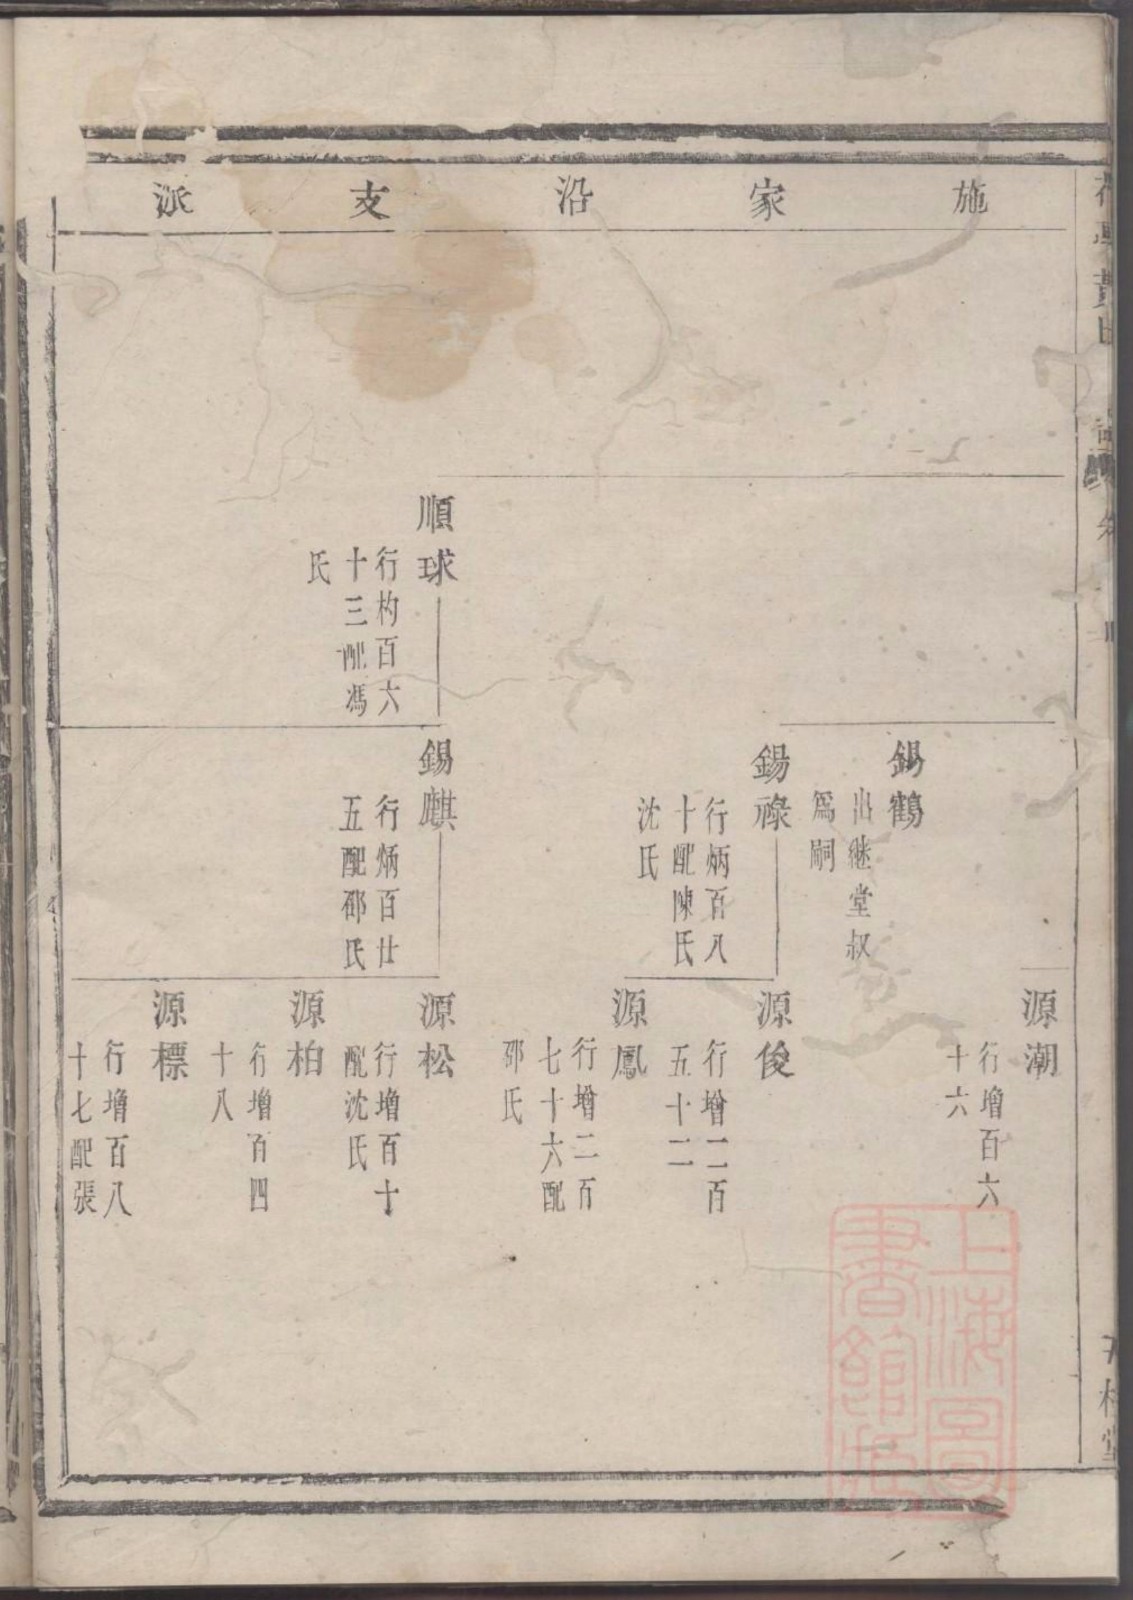 施家沿支派
源潮
行增百六
十六
錫鶴
出继堂叔
爲嗣
錫祿
行炳百八
十配陳氏
沈氏
源俊
行增二百
五十二
源鳳
行增二百
七十六配
邵氏
順球
行杓百六
十三配馮
氏
錫麒
行炳百廿
五配邵氏
源松
行增百十
配沈氏
源柏
行增百四
十八
源標
行增百八
十七配張
上海圖
書館藏